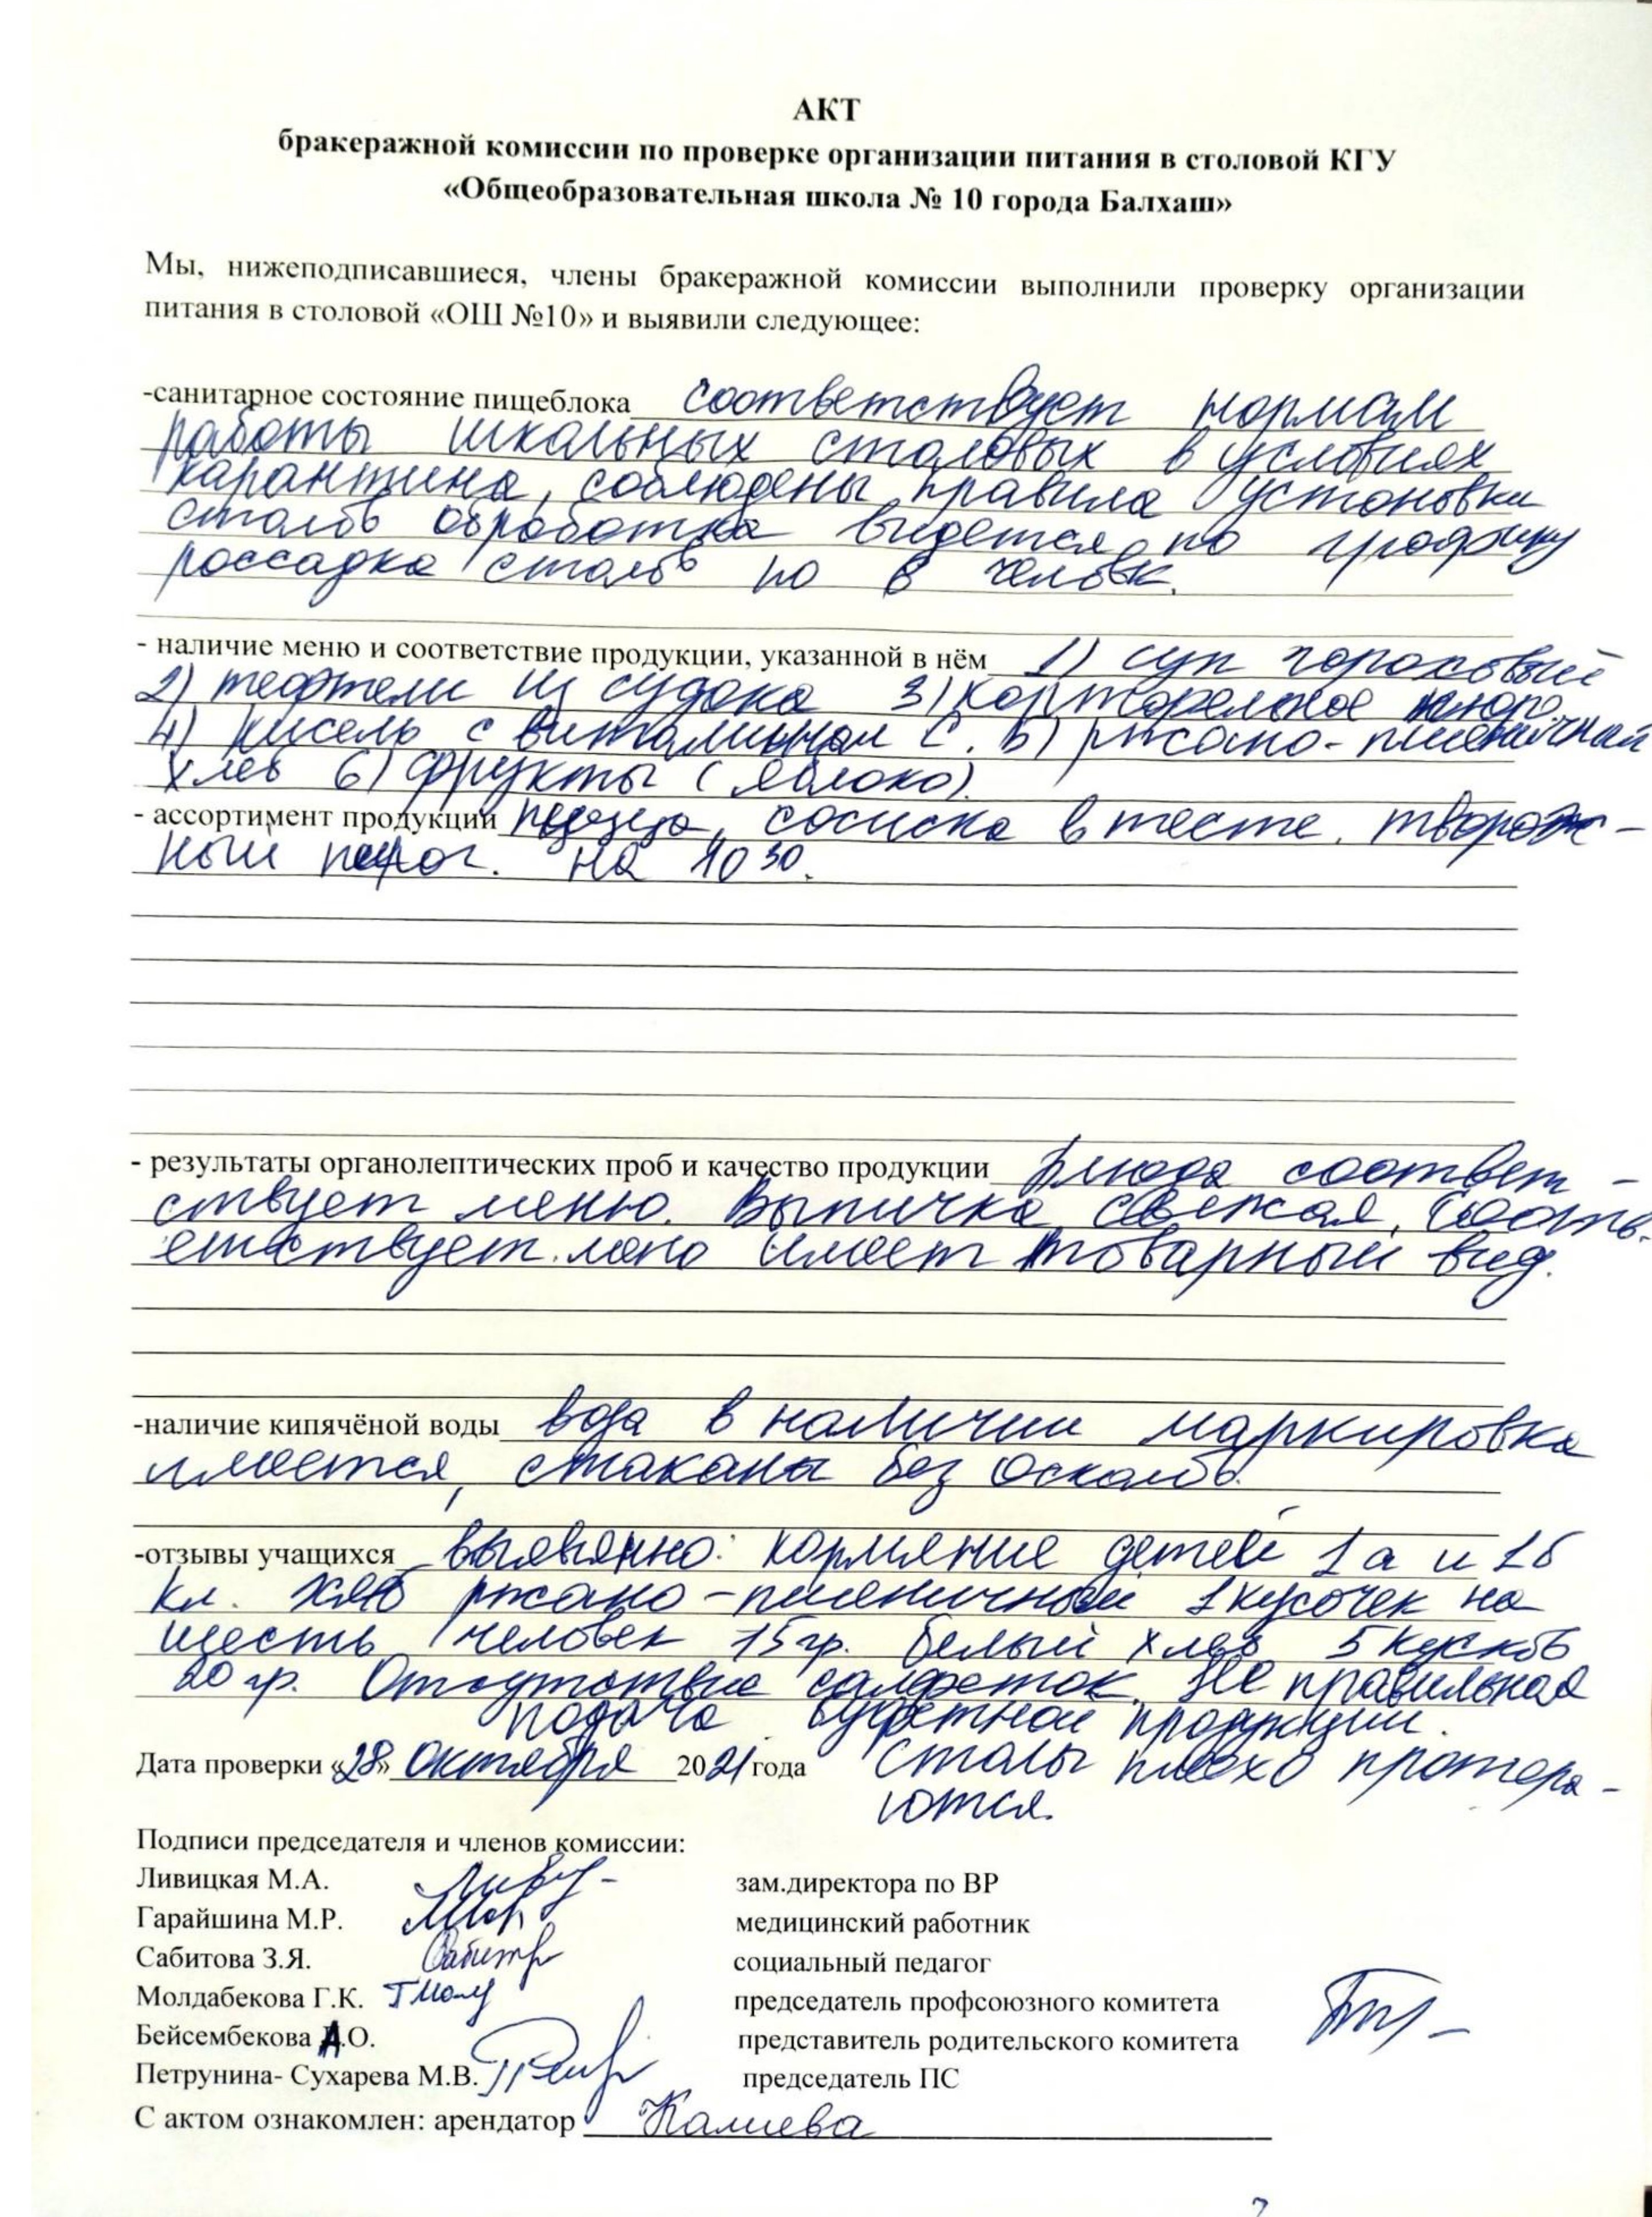 АКТ
бракеражной комиссии по проверке организации питания в столовой КГУ
«Общеобразовательная школа № 10 города Балхаш»
Мы, нижеподписавшиеся, члены бракеражной комиссии выполнили проверку организации
питания в столовой «ОШ №10» и выявили следующее:
-санитарное состояние пищеблока соответствует нормам
работы школьных столовых в условиях
карантина, соблюдены правила установки
столов обработка видется по графику
россадка столов по 8 человк.
- наличие меню и соответствие продукции, указанной в нём 1) суп гороховый
2) тефтели из судака 3) картофельное пюре
4) кисель с витамином С. 5) ржано-пшеничный
хлеб 6) фрукты (яблоко).
- ассортимент продукции пицца, сосиска в тесте, творож-
ный пирог. на 10 30.
- результаты органолептических проб и качество продукции Блюда соответ-
ствует меню. Выпичка свежая,
имеет товарный вид.
-наличие кипячёной воды вода в наличии маркировка
имеется, стаканы без осколов.
-отзывы учащихся выявленно: кормление детей 1а и 1б
кл. хлеб ржано-пшеничный 1 кусочек на
шесть человек 15 гр. белый хлеб 5 кусков
20 гр. Отсутствие салфеток. Не правильная
подача буфетной продукции.
Дата проверки «28» октября 2021 года столы плохо протера-
ются.
Подписи председателя и членов комиссии:
Ливицкая М.А. зам.директора по ВР
Гарайшина М.Р. медицинский работник
Сабитова З.Я. социальный педагог
Молдабекова Г.К. председатель профсоюзного комитета
Бейсембекова А.О. представитель родительского комитета
Петрунина- Сухарева М.В. председатель ПС
С актом ознакомлен: арендатор Калиева